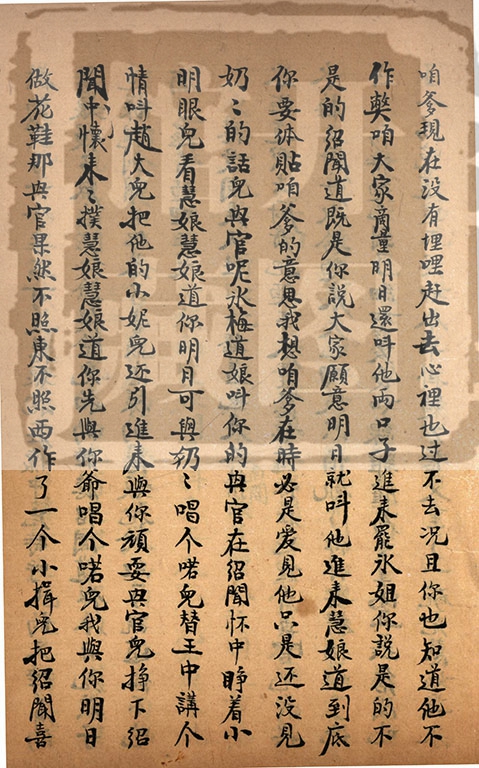 咱爹現在没有埋哩赶出去心裡也过不去况且你也知道他不
作獘咱大家商量明日还叫他両口子進来罷氷姐你説是的不
是的紹聞道既是你説大家願意明日就叫他進来慧娘道到底
你要体貼咱爹的意思我想咱爹在時必是爱見他只是还没見
奶〻的話児與官呢氷梅道娘叫你的與官在紹聞怀中睁着小
明眼児看慧娘慧娘道你明月可與奶〻唱个喏児替王中講个
情叫趙大児把他的小妮児还引進来與你頑耍與官児挣下紹
聞怀来〻撲慧娘慧娘道你先與你爺唱个喏児我與你明日
做花鞋那與官果然不照東不照西作了一个小揖児把紹聞喜